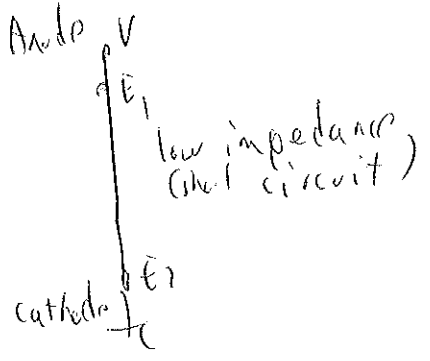 Anode V
E1
low impedance
(short circuit)
E2
cathode